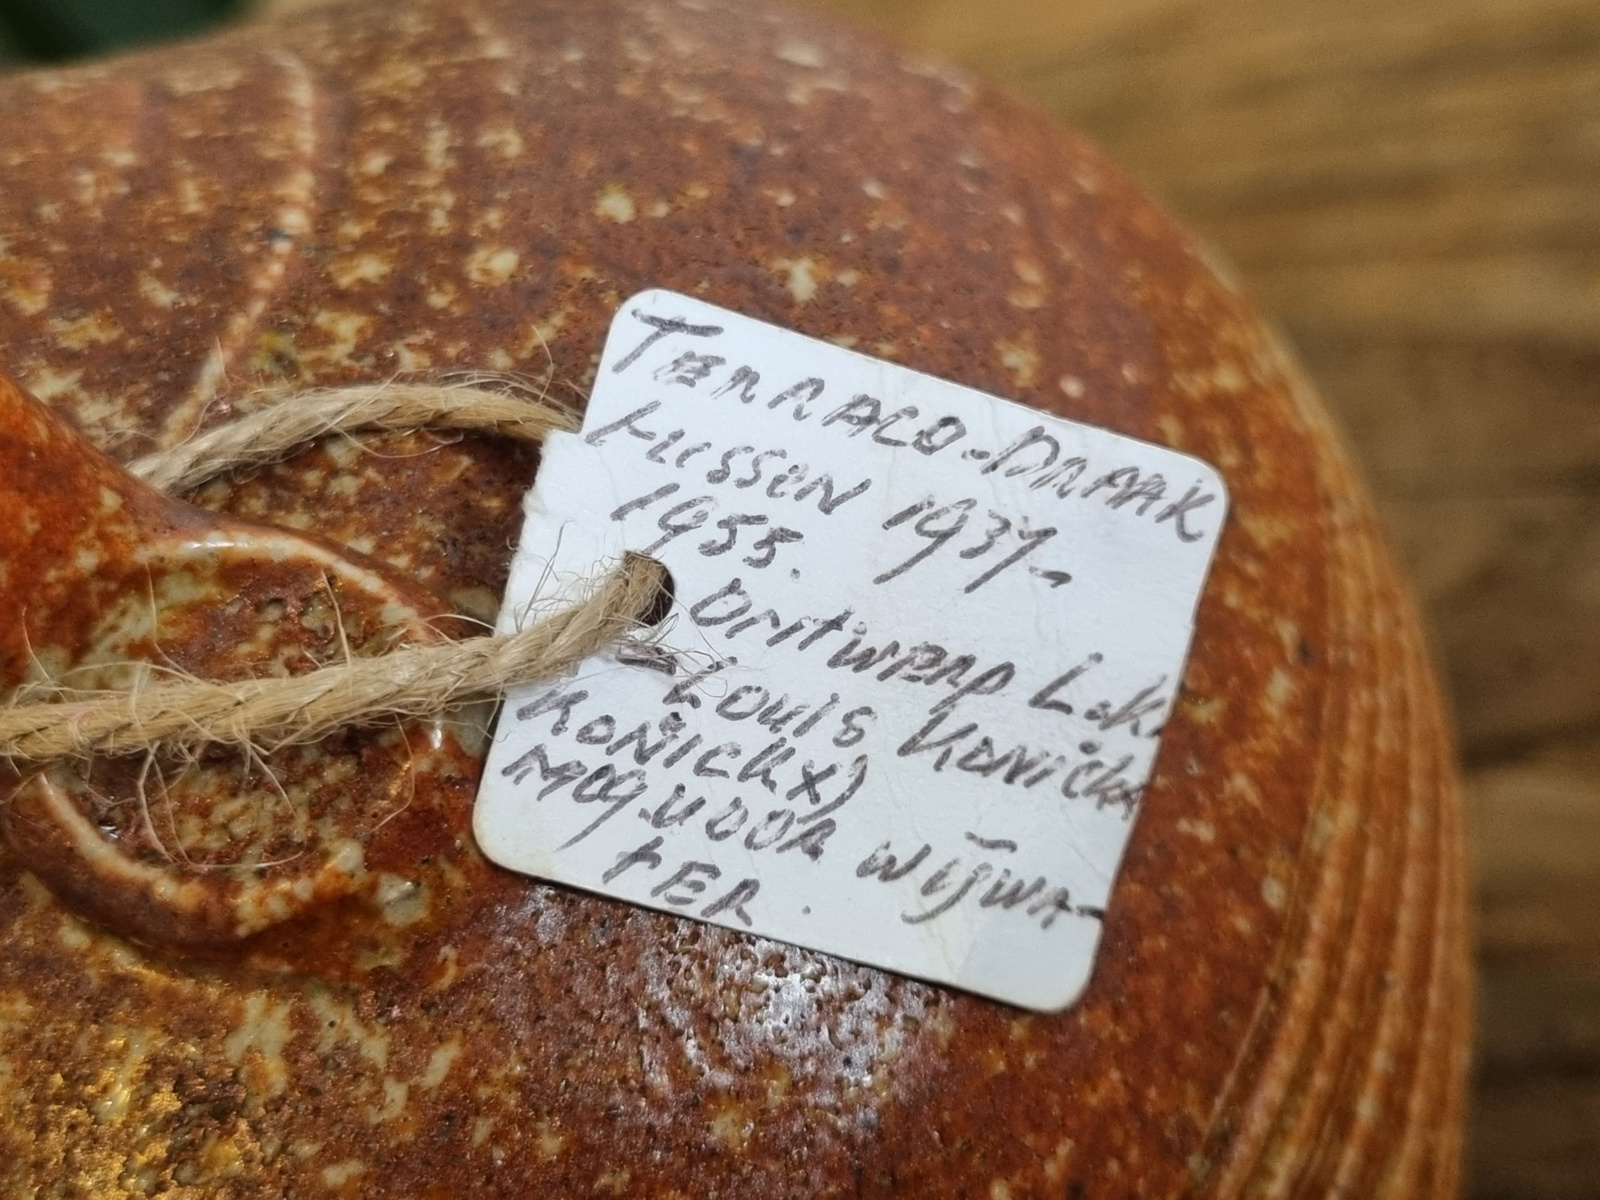 TERRACO-DRAAK
HUSSEN 1937-
1955.
ONTWERP L.K.
LOUIS KONICKX
KONICKX)
MOG. VOOR WIJWA-
TER.